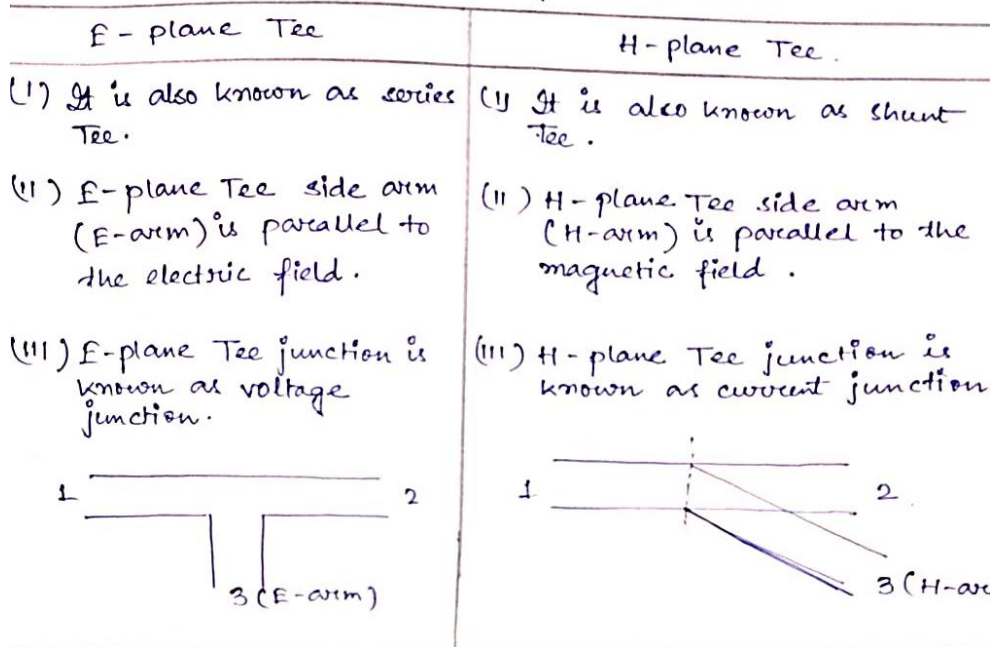 E - plane Tee
H - plane Tee.
(I) It is also known as series
Tee.
(I) It is also known as shunt
Tee.
(II) E - plane Tee side arm
(E-arm) is parallel to
the electric field.
(II) H - plane Tee side arm
(H-arm) is parallel to the
magnetic field.
(III) E-plane Tee junction is
known as voltage
junction.
(III) H - plane Tee junction is
known as current junction
1
2
3 (E-arm)
1
2
3 (H-ar